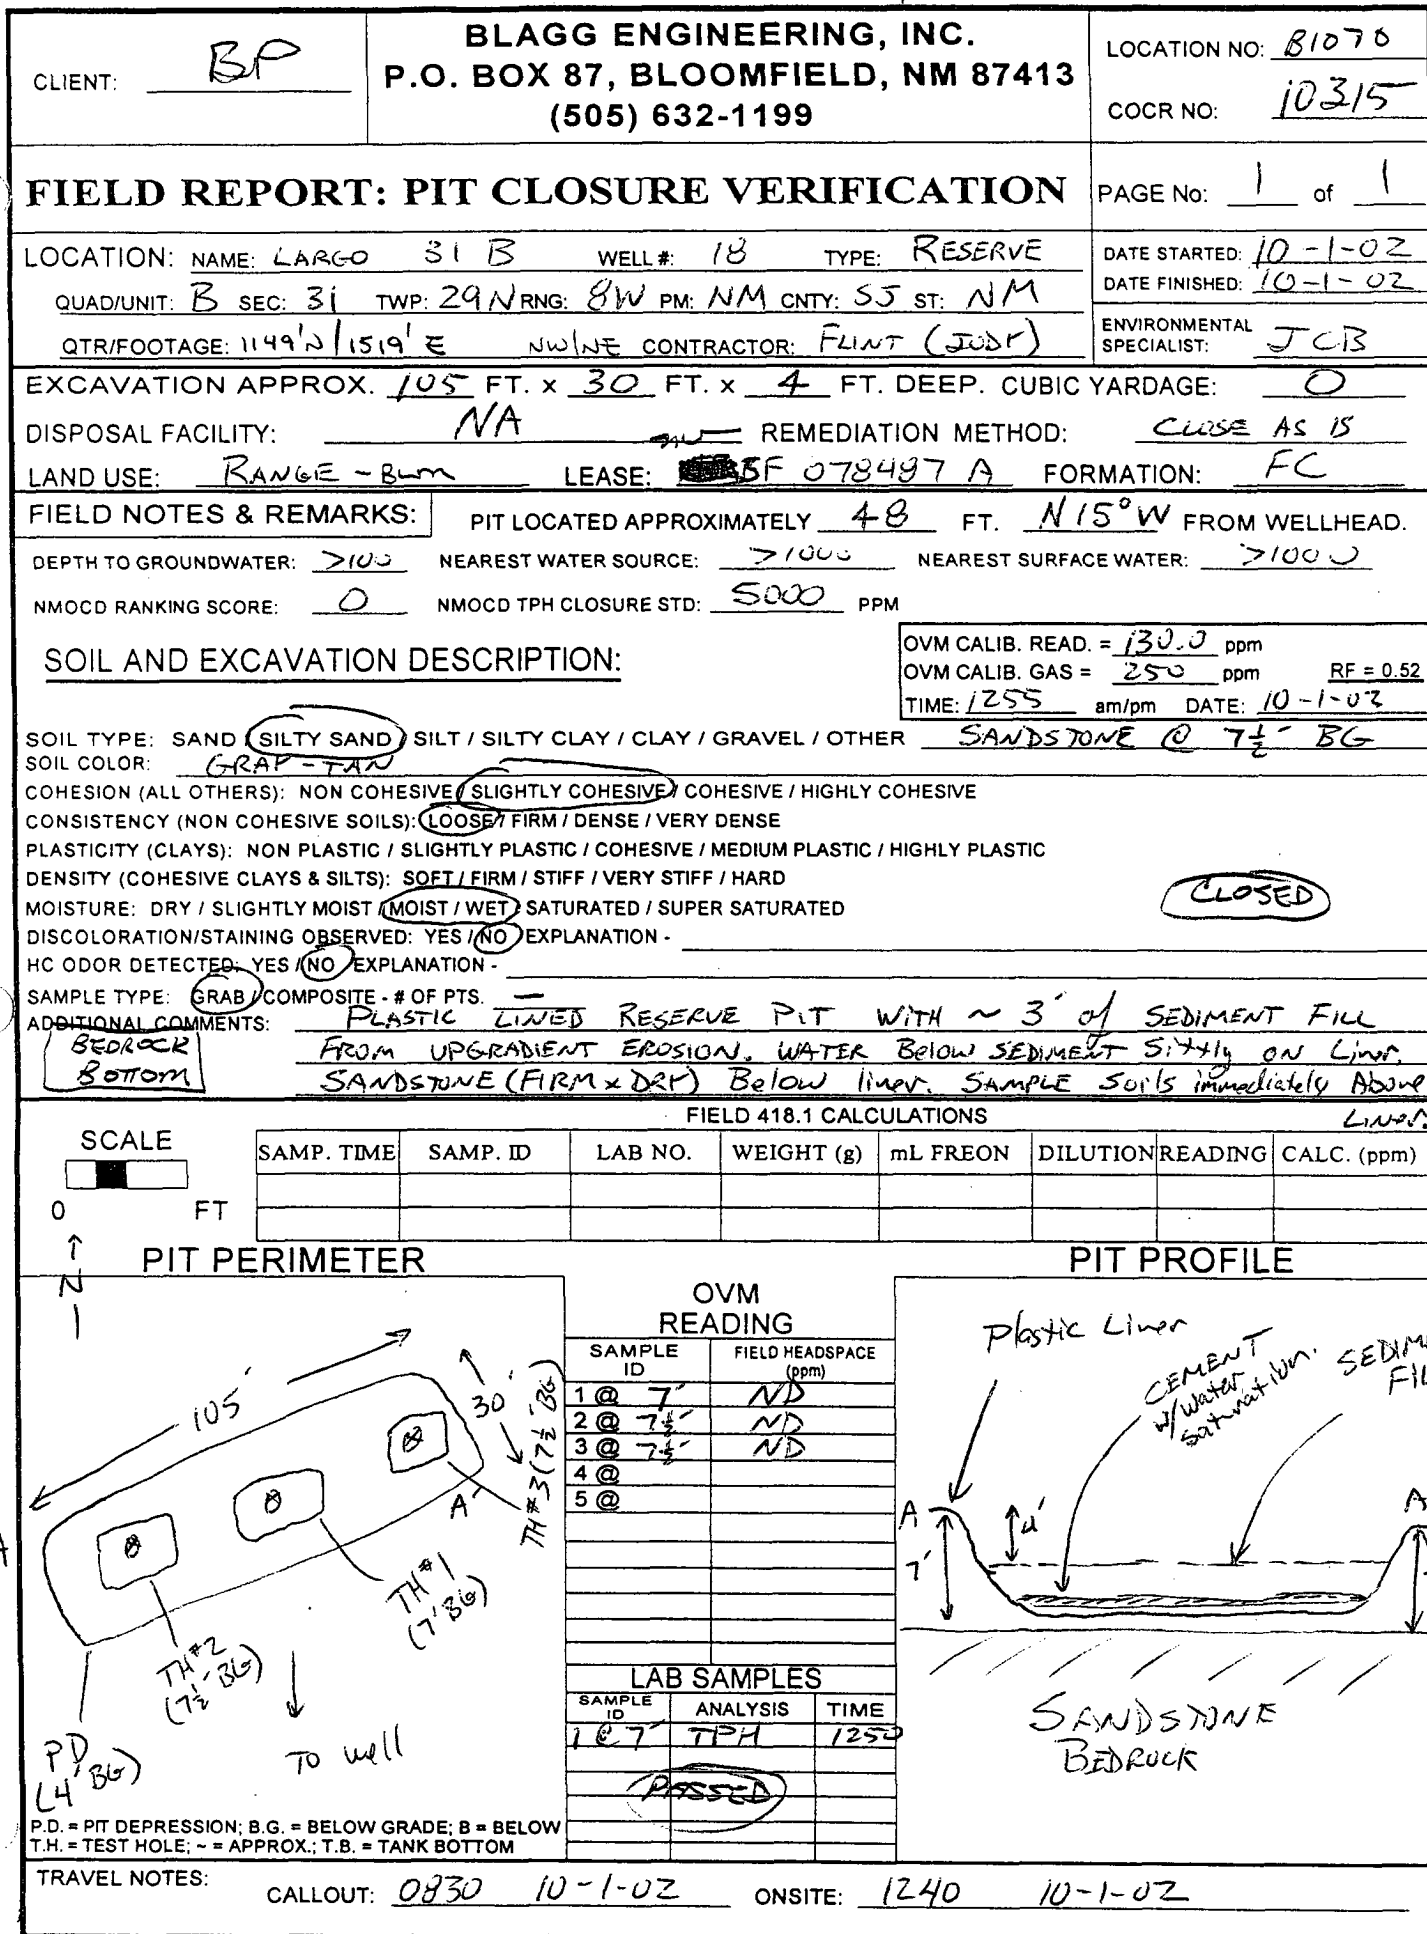 CLIENT: BP
BLAGG ENGINEERING, INC.
P.O. BOX 87, BLOOMFIELD, NM 87413
(505) 632-1199
LOCATION NO: B1070
COCR NO: 10315
FIELD REPORT: PIT CLOSURE VERIFICATION
PAGE No: 1 of 1
LOCATION: NAME: LARGO 31 B WELL #: 18 TYPE: RESERVE
QUAD/UNIT: B SEC: 31 TWP: 29N RNG: 8W PM: NM CNTY: SJ ST: NM
QTR/FOOTAGE: 1149'N/1519'E NW/NE CONTRACTOR: FLINT (JUDY)
DATE STARTED: 10-1-02
DATE FINISHED: 10-1-02
ENVIRONMENTAL
SPECIALIST: JCB
EXCAVATION APPROX. 105 FT. x 30 FT. x 4 FT. DEEP. CUBIC YARDAGE: 0
DISPOSAL FACILITY: NA REMEDIATION METHOD: CLOSE AS IS
LAND USE: RANGE - BLM LEASE: SF 078497 A FORMATION: FC
FIELD NOTES & REMARKS: PIT LOCATED APPROXIMATELY 48 FT. N15°W FROM WELLHEAD.
DEPTH TO GROUNDWATER: >100 NEAREST WATER SOURCE: >1000 NEAREST SURFACE WATER: >1000
NMOCD RANKING SCORE: 0 NMOCD TPH CLOSURE STD: 5000 PPM
SOIL AND EXCAVATION DESCRIPTION:
OVM CALIB. READ. = 130.0 ppm
OVM CALIB. GAS = 250 ppm RF = 0.52
TIME: 1255 am/pm DATE: 10-1-02
SOIL TYPE: SAND / SILTY SAND / SILT / SILTY CLAY / CLAY / GRAVEL / OTHER SANDSTONE @ 7½' BG
SOIL COLOR: GRAY - TAN
COHESION (ALL OTHERS): NON COHESIVE / SLIGHTLY COHESIVE / COHESIVE / HIGHLY COHESIVE
CONSISTENCY (NON COHESIVE SOILS): LOOSE / FIRM / DENSE / VERY DENSE
PLASTICITY (CLAYS): NON PLASTIC / SLIGHTLY PLASTIC / COHESIVE / MEDIUM PLASTIC / HIGHLY PLASTIC
DENSITY (COHESIVE CLAYS & SILTS): SOFT / FIRM / STIFF / VERY STIFF / HARD
CLOSED
MOISTURE: DRY / SLIGHTLY MOIST / MOIST / WET / SATURATED / SUPER SATURATED
DISCOLORATION/STAINING OBSERVED: YES / NO EXPLANATION -
HC ODOR DETECTED: YES / NO EXPLANATION -
SAMPLE TYPE: GRAB / COMPOSITE - # OF PTS. —
ADDITIONAL COMMENTS: PLASTIC LINED RESERVE PIT WITH ~ 3' of SEDIMENT FILL
BEDROCK BOTTOM
FROM UPGRADIENT EROSION. WATER Below SEDIMENT Sittig ON Liner.
SANDSTONE (FIRM & DRY) Below liner. SAMPLE Soils immediately Above
LINER.
FIELD 418.1 CALCULATIONS
SCALE
0 FT
SAMP. TIME SAMP. ID LAB NO. WEIGHT (g) mL FREON DILUTION READING CALC. (ppm)
N
PIT PERIMETER
105'
30'
A'
TH#3 (7½' BG)
TH#1
(7' BG)
TH#2
(7½' BG)
PD
(4' BG)
TO well
P.D. = PIT DEPRESSION; B.G. = BELOW GRADE; B = BELOW
T.H. = TEST HOLE; ~ = APPROX.; T.B. = TANK BOTTOM
OVM
READING
SAMPLE ID FIELD HEADSPACE (ppm)
1 @ 7' ND
2 @ 7½' ND
3 @ 7½' ND
4 @
5 @
LAB SAMPLES
SAMPLE ID ANALYSIS TIME
1 @ 7' TPH 1250
PASSED
PIT PROFILE
Plastic Liner
CEMENT
w/water
saturation.
SEDIM
FIL
A
4'
7'
A
SANDSTONE
BEDROCK
TRAVEL NOTES:
CALLOUT: 0830 10-1-02 ONSITE: 1240 10-1-02